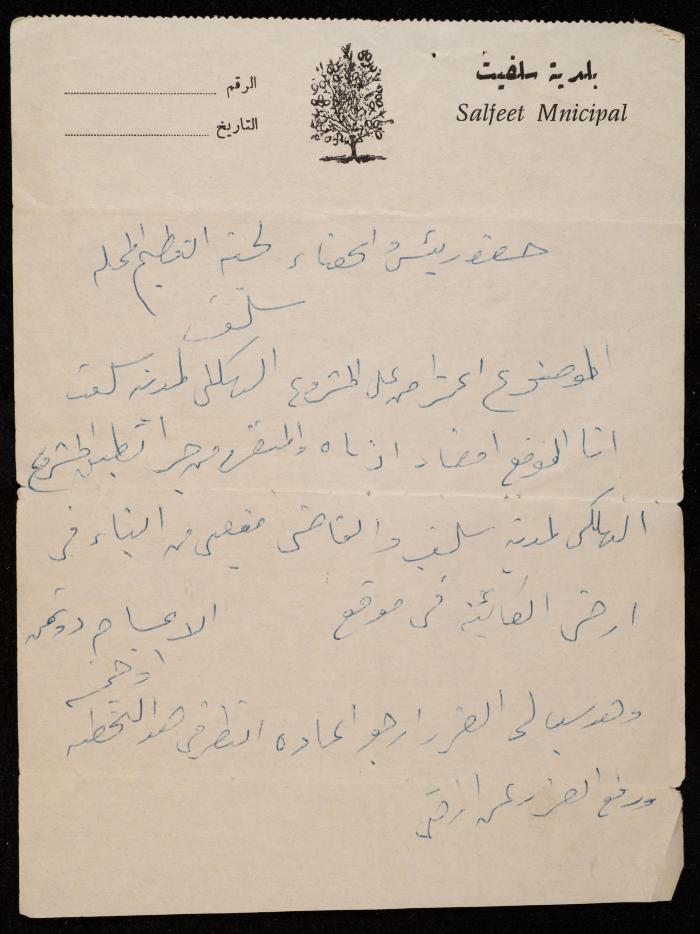 بلدية سلفيت
Salfeet Mnicipal
الرقم
التاريخ
حضور رئيس واعضاء لجنة التنظيم المحليه
سلفيت
الموضوع اعتراض على المشروع الهيكلي لمدينه سلفيت
انا الموقع امضاء ادناه والمتضرر من جراء تطبيق المشروع
الهيكلي لمدينة سلفيت والقاضي من البناء في
ارضي الكائينة في موقع
وهو سبب لي الضرر ارجو اعاده النظر في هذه التخطيه
ورفع الضرر عن ارضي